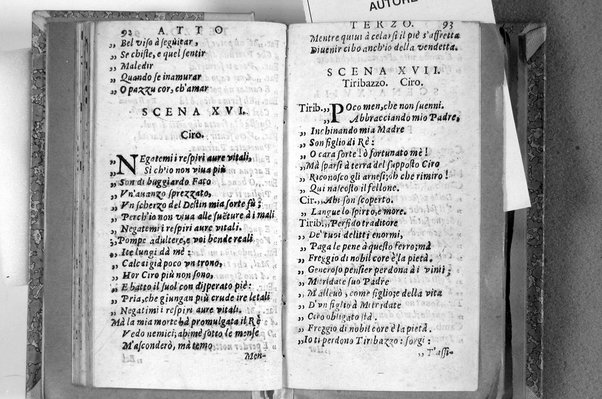 AUTORE
92 ATTO
„ Bel viso à seguitar,
„ Se chiste, e quel sentir
„ Maledir
„ Quando fe inamurar
„ O pazzu cor, ch'amar
SCENA XVI.
Ciro.
„ NEgatemi i respiri aure vitali,
„ Si ch'io non viua più
„ Son di buggiardo Fato
„ Vn'auanzo sprezzato,
„ Vn scherzo del Destin mia sorte fù;
„ Perch'io non viua alle suëture à i mali
„ Negatemi i respiri aure vitali.
„ Pompe adultere, e voi bende reali
„ Ite lungi dà mè:
„ Calcai già poco vn trono,
„ Hor Ciro più non sono,
„ E batto il suol con disperato piè:
„ Pria, che giungan più crude ire letali
„ Negatimi i respiri aure vitali.
Mà la mia morte hà promulgata il Rè
Vedo nemici; ahimè sotto le mense
M'asconderò, mà temo
Men-
TERZO. 93
Mentre quiui à celarsi il piè s'affretta
Diuenir cibo anch'io della vendetta.
SCENA XVII.
Tiribazzo. Ciro.
Tirib. „ POco men, che non suenni.
„ Abbracciando mia Padre,
„ Inchinando mia Madre
„ Son figlio di Rè:
„ O cara sorte! ò fortunato mè!
„ Mà sparsi à terra del supposto Ciro
„ Riconosco gli arnesi; oh che rimiro!
„ Qui nascosto il fellone.
Cir. „ Ahi son scoperto.
„ Langue lo spirto, e more.
Tirib. „ Perfido traditore
„ De' tuoi delitti enormi,
„ Paga le pene à questo ferro; mà
„ Freggio di nobil core è la pietà.
„ Generoso pensier perdona ài vinti;
„ Mitridate suo Padre
„ M'alleuò, come figlio; e della vita
„ D'vn figlio à Mitridate
„ Ciro obligato hà.
„ Freggio di nobil core è la pietà.
„ Io ti perdono Tiribazzo: sorgi:
„ T'assi-